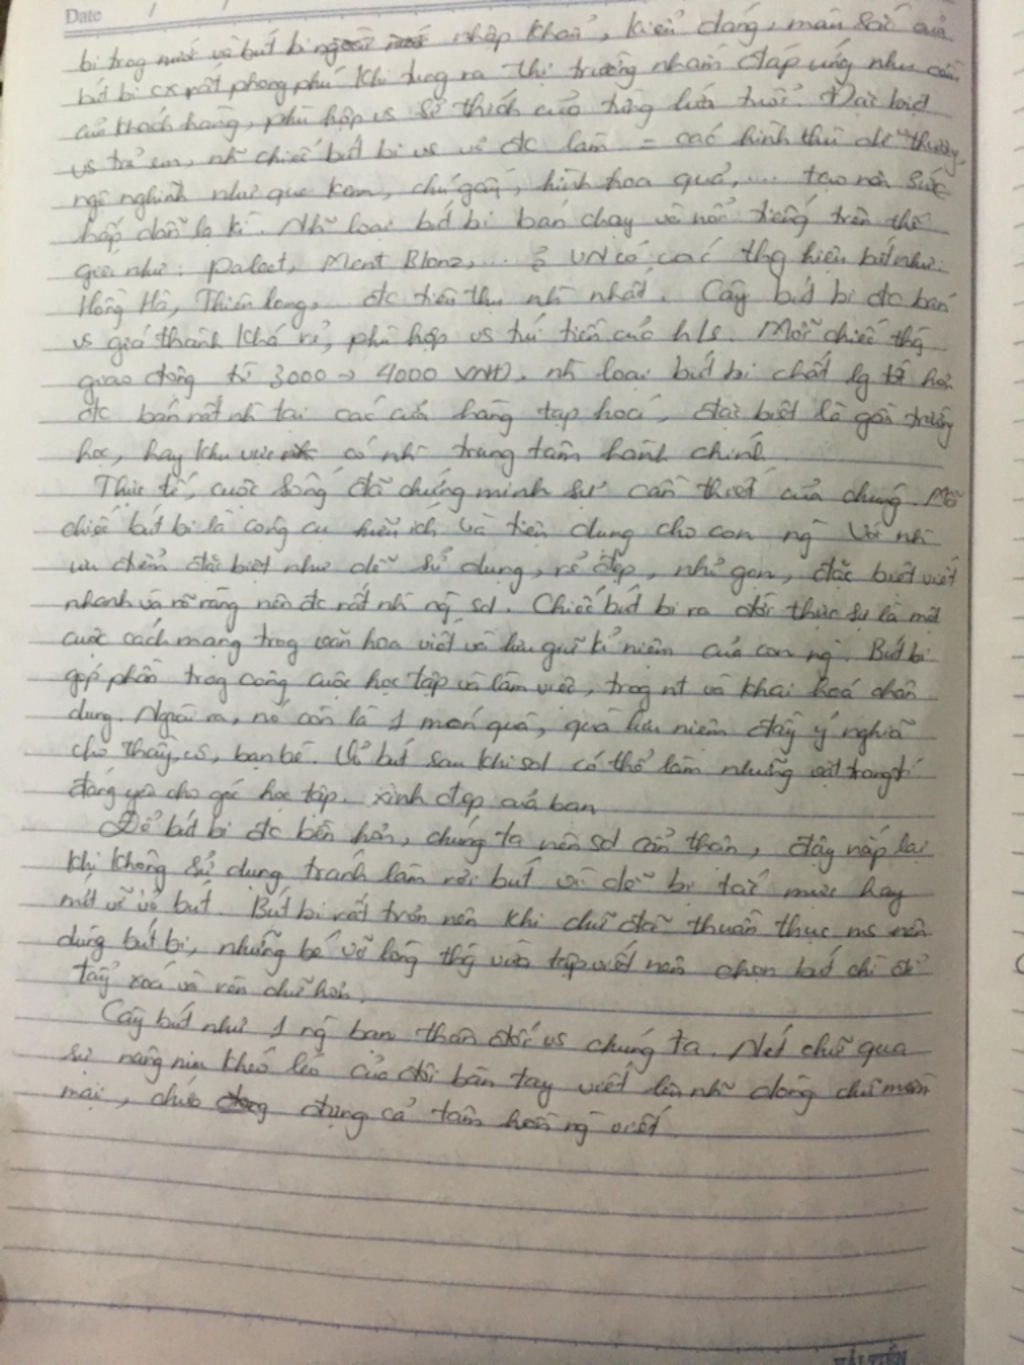 Date / /
bi trog nước và bút bi nhập khẩu, kiểu dáng, màu sắc của
bút bi cx rất phong phú khi tung ra thị trường nhằm đáp ứng nhu cầu
của khách hàng, phù hợp vs sở thích của từng lứa tuổi. Đặc biệt
vs trẻ em, nh~ chiếc bút bi vs vẻ đc làm = các hình thù dễ thương,
ngộ nghĩnh như que kem, chú gấu, hình hoa quả, ... tạo nên sức
hấp dẫn lạ kì. Nh~ loại bút bi bán chạy và nổi tiếng trên thế
giới như: Paleet, Ment Blonz, ... ở VN có các thg hiệu bút như:
Hồng Hà, Thiên Long, ... đc tiêu thụ nh` nhất. Cây bút bi đc bán
vs giá thành khá rẻ, phù hợp vs túi tiền của h/s. Mỗi chiếc thg
giao động từ 3000 → 4000 VNĐ. nh~ loại bút bi chất lg hơn
đc bán rất nh` tại các cửa hàng tạp hoá, đặc biệt là gần trường
học, hay khu vực có nh` trung tâm hành chính.
Thực tế, cuộc sống đã chứng minh sự cần thiết của chúng. Mỗi
chiếc bút bi là công cụ hữu ích và tiện dụng cho con ng`. Với nh~
ưu điểm đặc biệt như dễ sử dụng, rẻ đẹp, nhỏ gọn, đặc biệt viết
nhanh và rõ ràng nên đc rất nh` ng` sd. Chiếc bút bi ra đời thực sự là một
cuộc cách mạng trog văn hoa viết và lưu giữ kỉ niệm của con ng`. Bút bi
góp phần trog công cuộc học tập và làm việc, trog nt và khai hoá chân
dung. Ngoài ra, nó còn là 1 món quà, quà lưu niệm đầy ý nghĩa
cho thầy, cô, bạn bè. Vỏ bút sau khi sd có thể làm những vật trang trí
đáng yêu cho góc học tập. xinh đẹp của bạn
Để bút bi đc bền hơn, chúng ta nên sd cẩn thận, đậy nắp lại
khi không sử dụng tránh làm rơi bút vì dễ bị tắc mực hay
nứt vỡ vỏ bút. Bút bi rất trơn nên khi chữ đã thuần thục ms nên
dùng bút bi, những bé vỡ lòng thg vừa tập viết nên chọn bút chì để
tẩy xoá và rèn chữ hơn.
Cây bút như 1 ng` bạn thân đối vs chúng ta. Nét chữ qua
sự nâng niu khéo léo của đôi bàn tay viết lên nh~ dòng chữ mềm
mại, chứa đựng cả tâm hồn ng` viết.
HẢI TIẾN